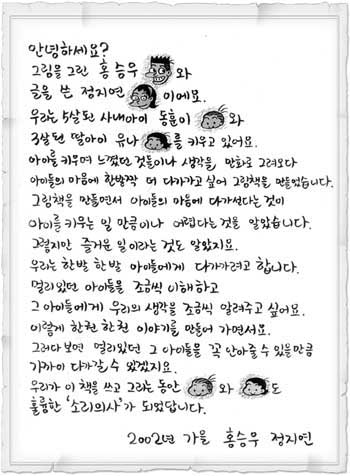 안녕하세요?
그림을 그린 홍승우 와
글을 쓴 정지연 이에요.
우리는 5살된 사내아이 동훈이 와
3살된 딸아이 유나 를 키우고 있어요.
아이를 키우며 느꼈던 것들이나 생각을, 만화로 그려오다
아이들의 마음에 한발짝 더 다가가고 싶어 그림책을 만들었습니다.
그림책을 만들면서 아이들의 마음에 다가선다는 것이
아이를 키우는 일 만큼이나 어렵다는 것을 알았습니다.
그렇지만 즐거운 일이라는 것도 알았지요.
우리는 한발 한발 아이들에게 다가가려고 합니다.
멀리있던 아이들을 조금씩 이해하고
그 아이들에게 우리의 생각을 조금씩 알려주고 싶어요.
이렇게 한권 한권 이야기를 만들어 가면서요.
그러다보면 멀리있던 그 아이들을 꼭 안아줄 수 있을만큼
가까이 다가갈 수 있겠지요.
우리가 이 책을 쓰고 그리는 동안 와 도
훌륭한 '소리의사'가 되었답니다.
2002년 가을 홍승우 정지연